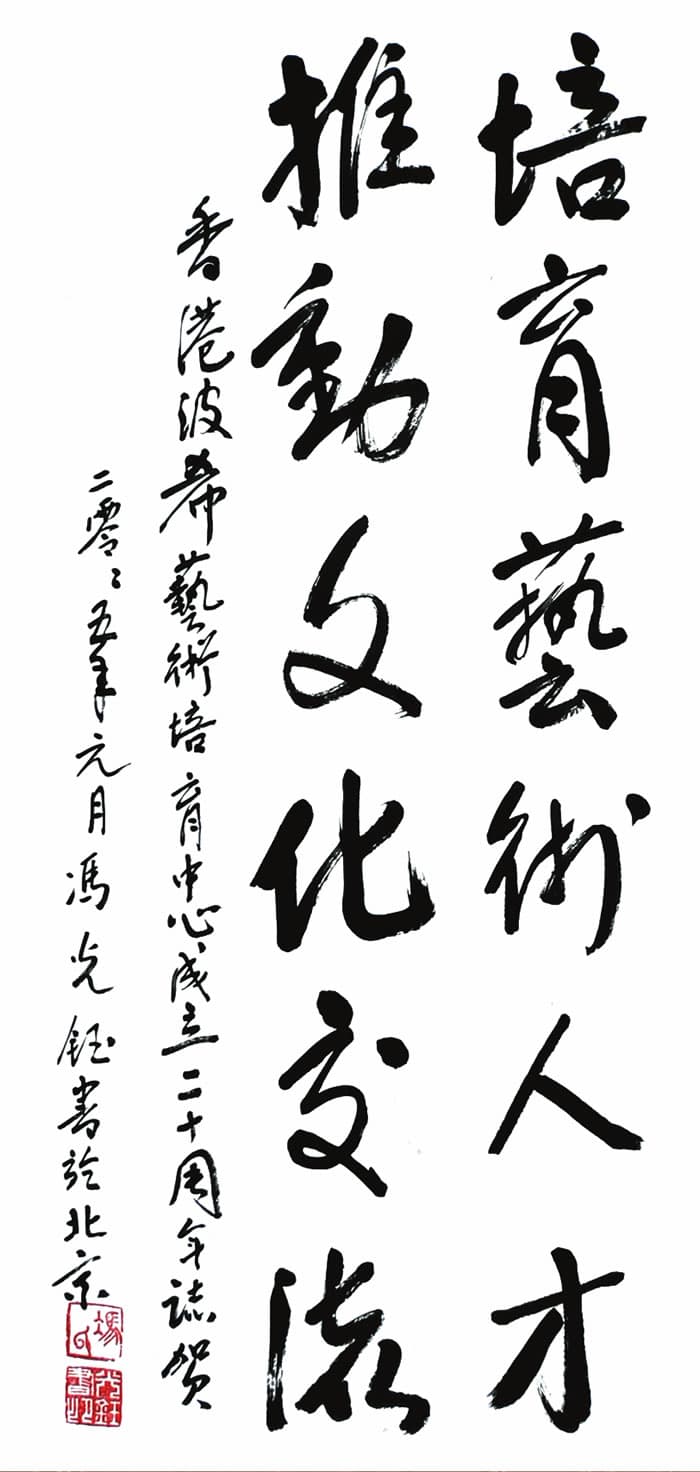 培育藝術人才
推動文化交流
香港波希藝術培育中心成立二十周年誌贺
二零零五年元月馮光鈺書於北京